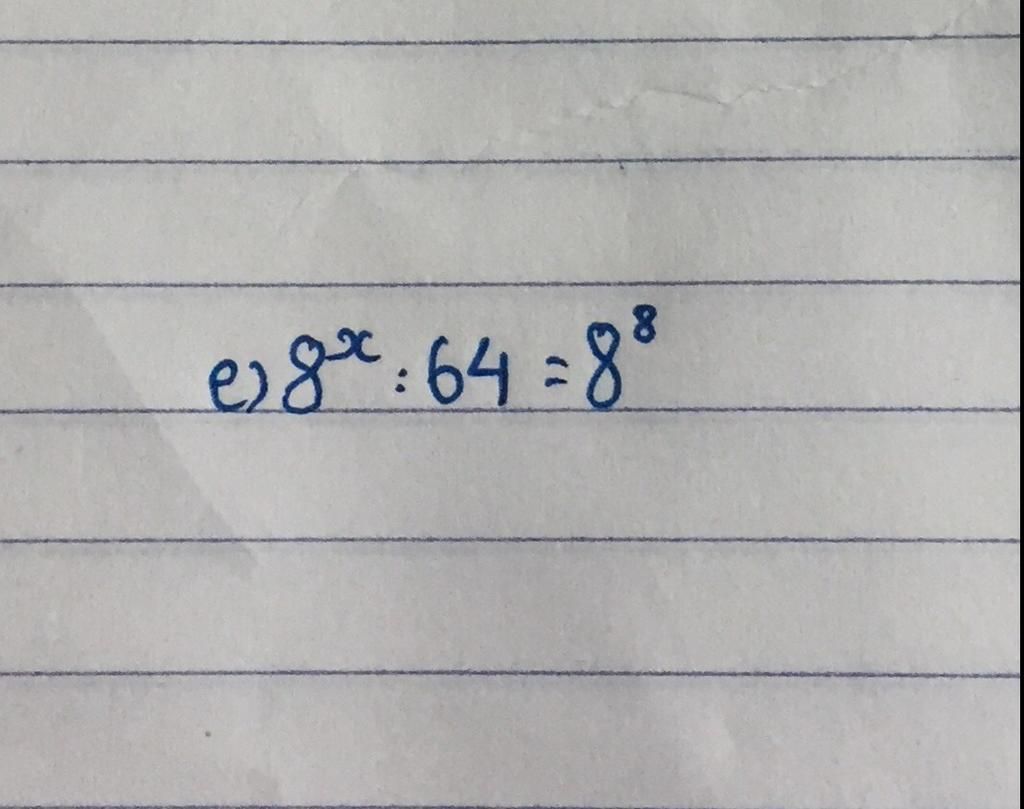 e) 8^x : 64 = 8^8